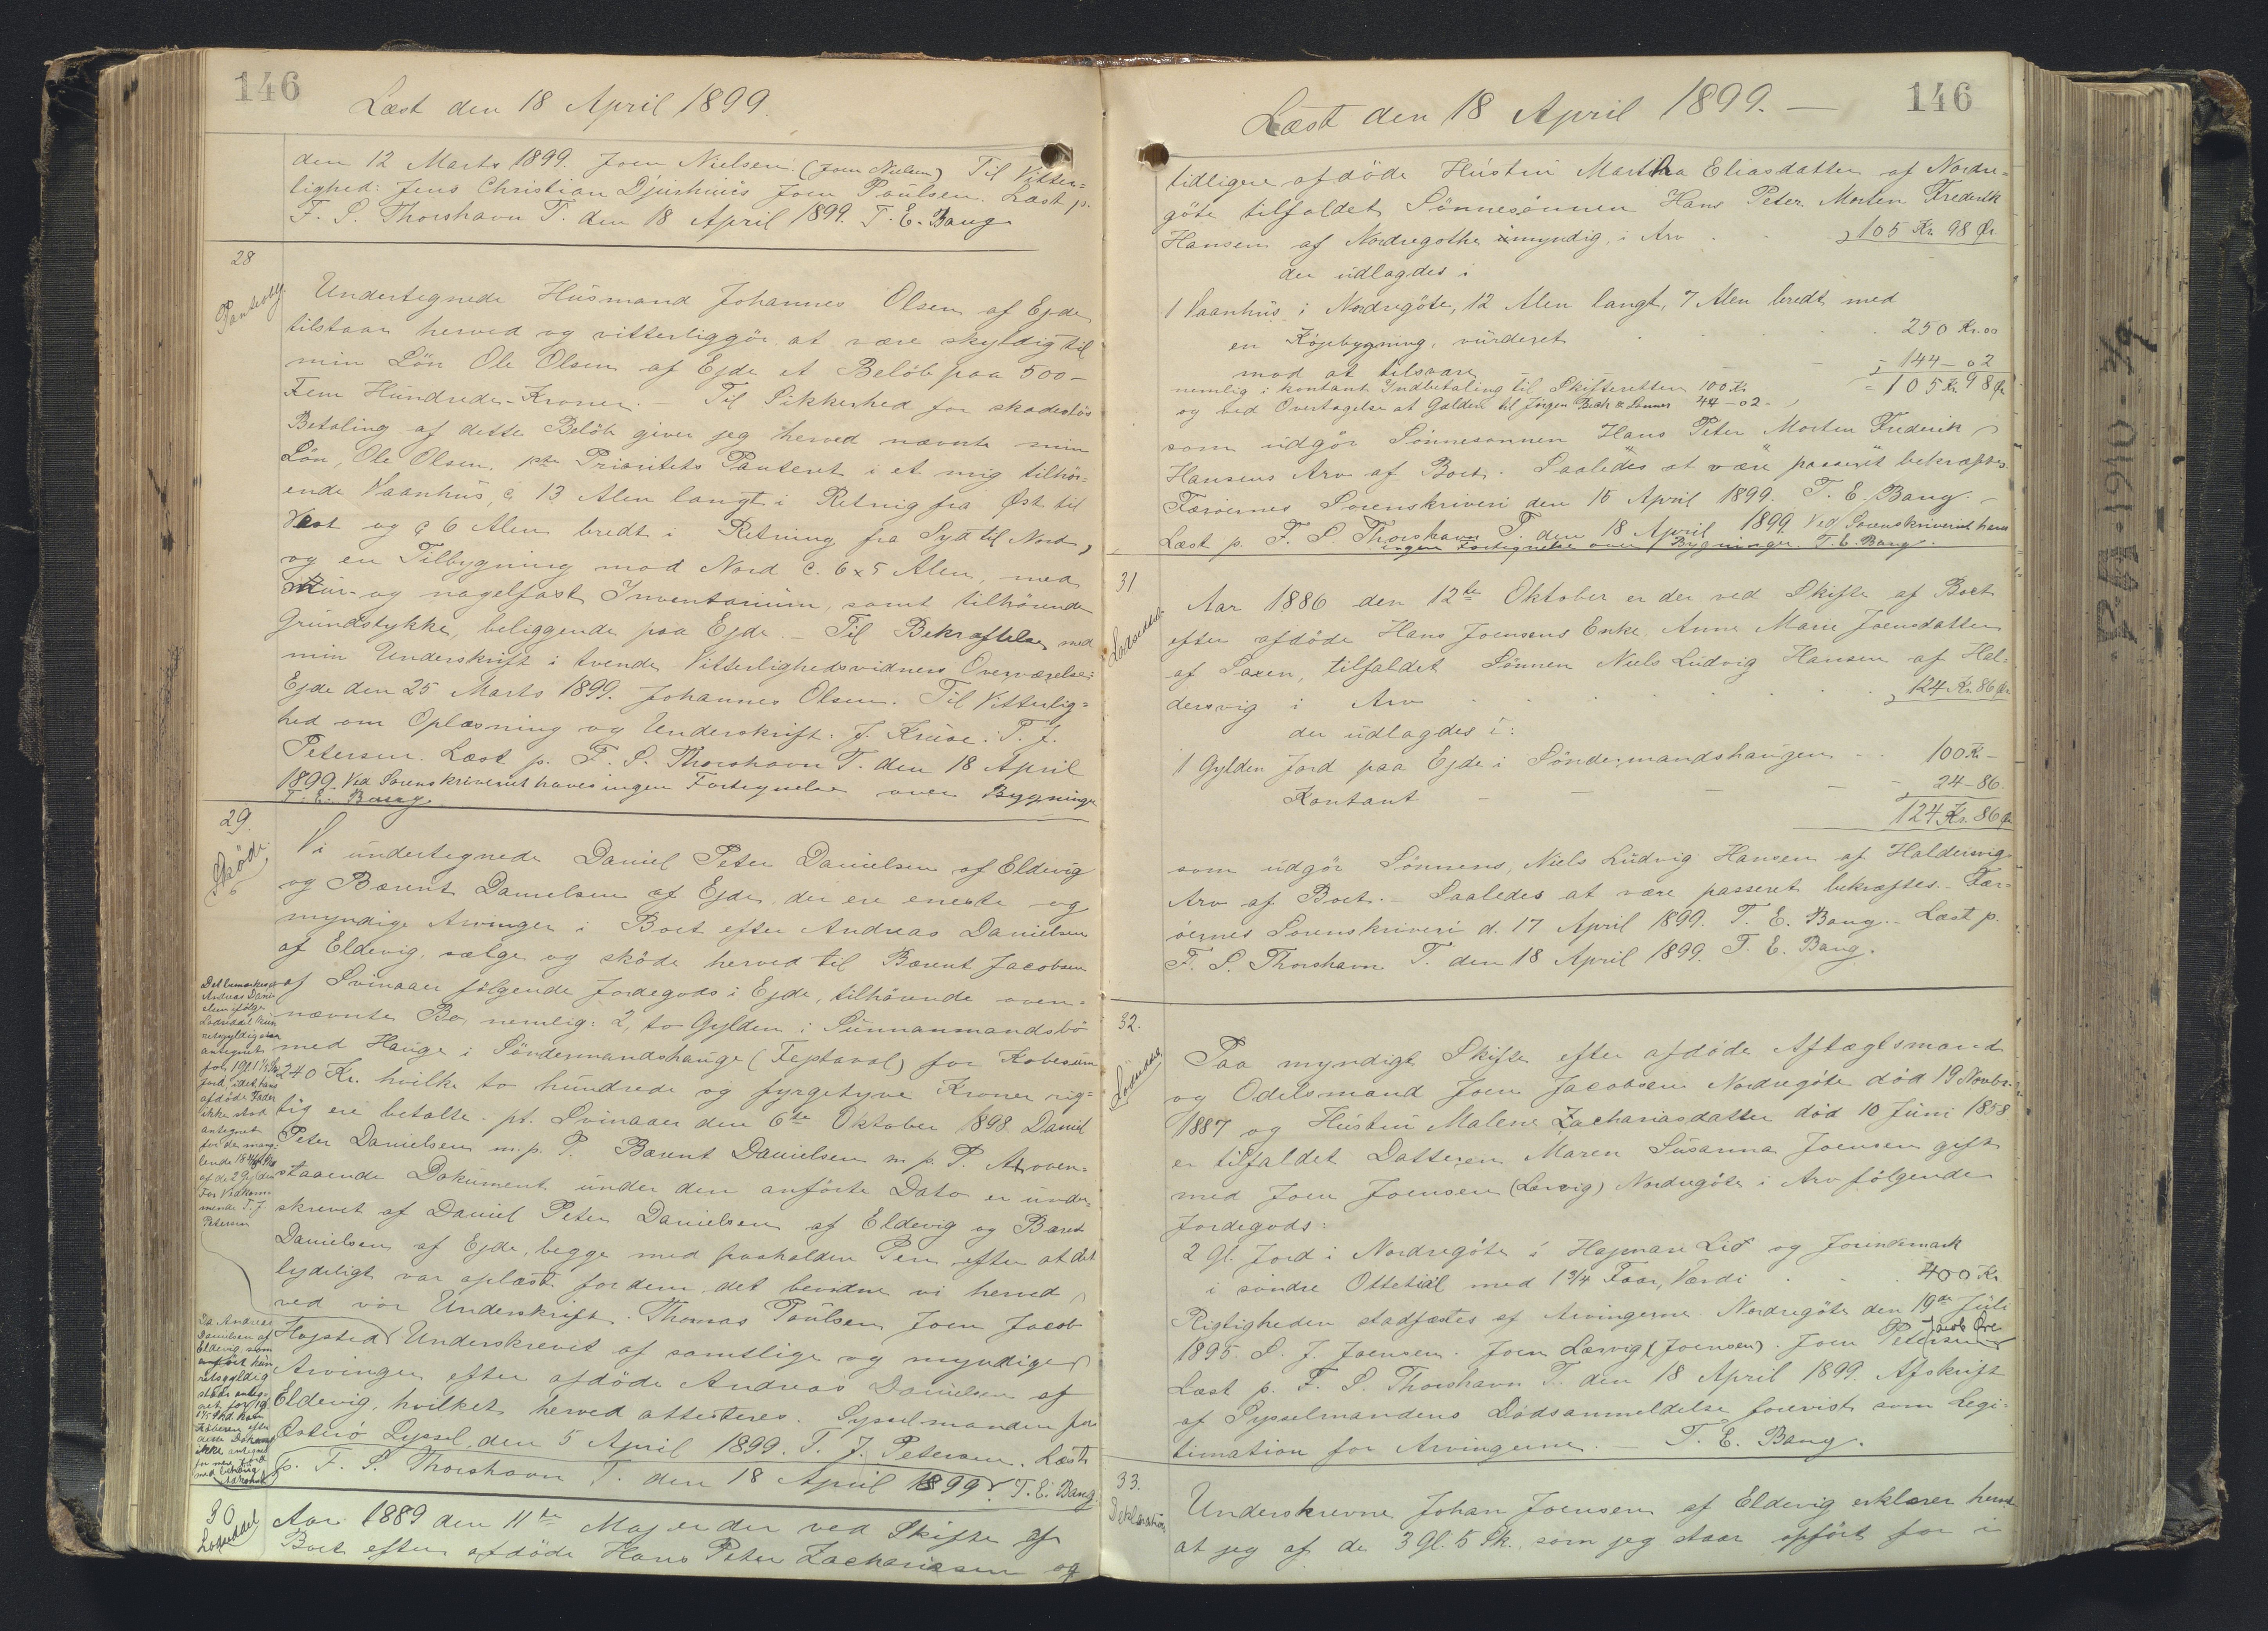 146
Læst den 18 April 1899.
den 12 Marts 1899. Joen Nielsen. (Joen Nielsen) Til Vitter=
lighed: Jens Christian Djurhuus Joen Poulsen. Læst p.
F. S. Thorshavn T. den 18 April 1899. T. E. Bang
28
Undertegnede Husmand Johannes Olsen af Ejde
tilstaar herved og vitterliggör at være skyldig til
min Sön Ole Olsen af Ejde et Belöb paa 500 –
Fem Hundrede – Kroner. – Til Sikkerhed for skadeslös
Betaling af dette Belöb giver jeg herved nævnte min
Sön, Ole Olsen, 1ste Prioritets Panteret i et mig tilhör=
ende Vaanhus, c. 13 Alen langt i Retnig fra Øst til
Vest og c. 6 Alen bredt i Retning fra Syd til Nord,
og en Tilbygning mod Nord c. 6 x 5 Alen, med
mur- og nagelfast Inventarium, samt tilhörende
Grundstykke, beliggende paa Ejde. – Til Bekræftelse med
min Underskrift i tvende Vitterlighedsvidners Overværelse:
Ejde den 25 Marts 1899. Johannes Olsen. Til Vitterlig=
hed om Oplæsning og Underskrift. J. Kruse. T. J.
Petersen. Læst p. F. S. Thorshavn T. den 18 April
1899. Ved Sorenskriveriet haves ingen Fortegnelse over Bygninger
T. E. Bang.
29.
Skøde
Vi undertegnede Daniel Peter Danielsen af Eldevig
og Barent Danielsen af Ejde, der ere eneste og
myndige Arvinger i Boet efter Andreas Danielsen
af Eldevig, sælge og sköde herved til Barent Jacobsen
af Svinaaer fölgende Jordegods i Ejde, tilhörende oven=
nævnte Bo, nemlig: 2, to Gylden i Sunnanmandsbö
med Hauge i Söndermandshauge (Feptaval) for Köbesum
240 Kr. hvilke to hundrede og fyrgetyve Kroner rig=
tig ere betalte. pt. Svinaaer den 6te Oktober 1898. Daniel
Peter Danielsen m. p. P. Barent Danielsen m. p. P. At oven=
staaende Dokument under den anförte Dato er under=
skrevet af Daniel Peter Danielsen af Eldevig og Barent
Danielsen af Ejde, begge med paaholden Pen efter at det
lydeligt var oplæst for dem, det bevidne vi herved
ved vor Underskrift. Thomas Poulsen Joen Jacob
Højsted Underskrevet af samtlige og myndige
Arvinger efter afdöde Andreas Danielsen af
Eldevig, hvilket herved attesteres. Sysselmanden for
Österö Syssel, den 5 April 1899. T. J. Petersen. Læst
p. F. S. Thorshavn T. den 18 April 1899. T. E. Bang.
Det bemærkes at
Andreas Dani=
elsen ifölge
Lodseddel kun
retsgyldig staar
antegnet
for 1 gl. 1 1/5 Sk
Jord, idet hans
afdöde Fader
ikke stod
antegnet
for de mang=
lende
af de 2 Gylden
For Vedkom=
mende T. J.
Petersen
Da Andreas
Danielsen af
Eldevig som
anfört kun
retsgyldig
staar anteg=
net for 1 gl.
30
Lodseddel
Aar 1889 den 11te Maj er der ved Skifte af
Boet efter afdöde Hans Peter Zachariasen og
146
Læst den 18 April 1899. –
tidligere afdöde Hustru Martha Eliasdatter af Nordre=
göte tilfaldet Sönnesönnen Hans Peter Morten Frederik
Hansen af Nordregothe umyndig, i Arv . . 105 Kr. 98 Ør.
der udlagdes i
1 Vaanhus i Nordregöte, 12 Alen langt, 7 Alen bredt med
en Köjebygning, vurderet . . . 250 Kr. 00
mod at tilsvare – – – 144 – 02
nemlig i kontant Indbetaling til Skifteretten 100 Kr. = 105 Kr. 98 Ør
og ved Overtagelse at Gælden til Jörgen Bech & Sønner 44 – 02 –
som udgör Sönnesönnen Hans Peter Morten Frederik
Hansens Arv af Boet. Saaledes at være passeret bekræftes.
Færöernes Sorenskriveri den 15 April 1899. T. E. Bang. –
Læst p. F. S. Thorshavn T. den 18 April 1899 Ved Sorenskriveriet haves
ingen Fortegnelse over Bygninger. T. E. Bang.
31
Lodseddel
Aar 1886 den 12te Oktober er der ved Skifte af Boet
efter afdöde Hans Joensens Enke, Anne Marie Joensdatter
af Saxen, tilfaldet Sönnen Niels Ludvig Hansen af Hal=
dersvig i Arv . . . . 124 Kr. 86 Ør.
der udlagdes i:
1 Gylden Jord paa Ejde i Söndermandshaugen – . . 100 Kr –
Kontant – – – – – 24 – 86.
124 Kr. 86 Ør
som udgör Sönnens, Niels Ludvig Hansen af Haldersvig
Arv af Boet. – Saaledes at være passeret bekræftes. – Fær=
öernes Sorenskriveri d. 17 April 1899. T. E. Bang. – Læst p.
F. S. Thorshavn T. den 18 April 1899. T. E. Bang.
32.
Lodseddel
Paa myndigt Skifte efter afdöde Aftægtsmand
og Odelsmand Joen Jacobsen Nordregöte död 19 Novbr.
1887 og Hustru Malene Zachariasdatter död 10 Juni 1858
er tilfaldet Datteren Maren Susanna Joensen gift
med Joen Joensen (Lervig) Nordregöte i Arv fölgende
Jordegods:
2 gl. Jord i Nordregöte i Hapnare Lid og Josinsmark
i söndre Ottetial med 1 3/4 Faar, Værdi . . . 400 Kr.
Rigtigheden stadfæstes af Arvingerne. Nordregöte den 19de Juli
1895. S. J. Joensen. Joen Lervig (Joensen). Joen Petersen
Læst p. F. S. Thorshavn T. den 18 April 1899. Afskrift
af Sysselmandens Dödsanmeldelse forevist som Legi=
timation for Arvingerne. – T. E. Bang.
33.
Deklaration
Underskrevne Johan Joensen af Eldevig erklærer herved
at jeg af de 3 gl. 5 Sk. som jeg staar opfört for i